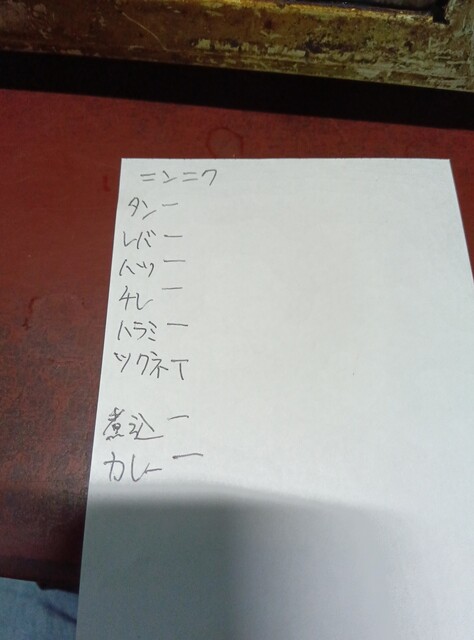 ニンニク
タン 一
レバ 一
ハツ 一
チレ 一
ハラミ 一
ツクネ T
煮込 一
カレー 一